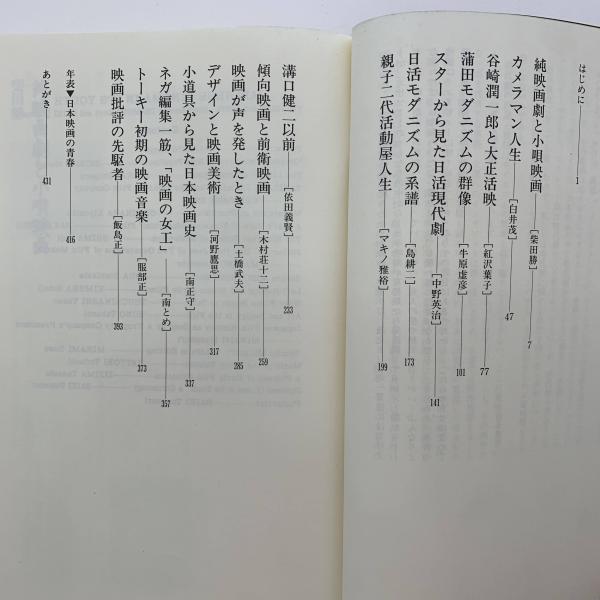 はじめに――1
純映画劇と小唄映画――[柴田勝]――7
カメラマン人生――[白井茂]――47
谷崎潤一郎と大正活映――[紅沢葉子]――77
蒲田モダニズムの群像――[牛原虚彦]――101
スターから見た日活現代劇――[中野英治]――141
日活モダニズムの系譜――[島耕二]――173
親子二代活動屋人生――[マキノ雅裕]――199
溝口健二以前――[依田義賢]――233
傾向映画と前衛映画――[木村荘十二]――259
映画が声を発したとき――[土橋武夫]――285
デザインと映画美術――[河野鷹思]――317
小道具から見た日本映画史――[南正守]――337
ネガ編集一筋、「映画の女工」――[南とめ]――357
トーキー初期の映画音楽――[服部正]――373
映画批評の先駆者――[飯島正]――393
年表▼日本映画の青春――416
あとがき――431